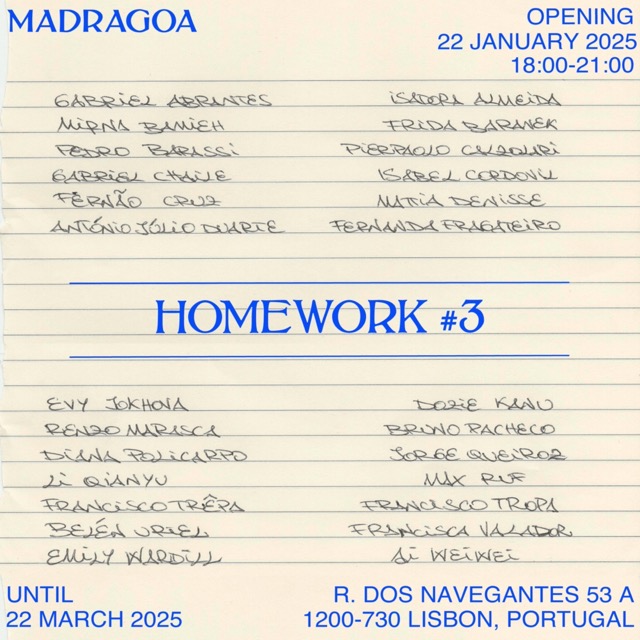 MADRAGOA
OPENING
22 JANUARY 2025
18:00-21:00
GABRIEL ABRANTES
ISADORA ALMEIDA
MIRNA BAMIEH
FRIDA BARANEK
PEDRO BARASSI
PIERPAOLO CALZOLARI
GABRIEL CHAILE
ISABEL CORDOVIL
FERNÃO CRUZ
MATTIA DENISSE
ANTÓNIO JÚLIO DUARTE
FERNANDA FRAGATEIRO
HOMEWORK #3
EVY JOKHOVA
DOZIE KANU
RENZO MARASCA
BRUNO PACHECO
DIANA POLICARPO
JORGE QUEIROZ
LI QIANYU
MAX RUF
FRANCISCO TRÊPA
FRANCISCO TROPA
BELÉN URIEL
FRANCISCA VALADOR
EMILY WARDILL
AI WEIWEI
UNTIL
22 MARCH 2025
R. DOS NAVEGANTES 53 A
1200-730 LISBON, PORTUGAL